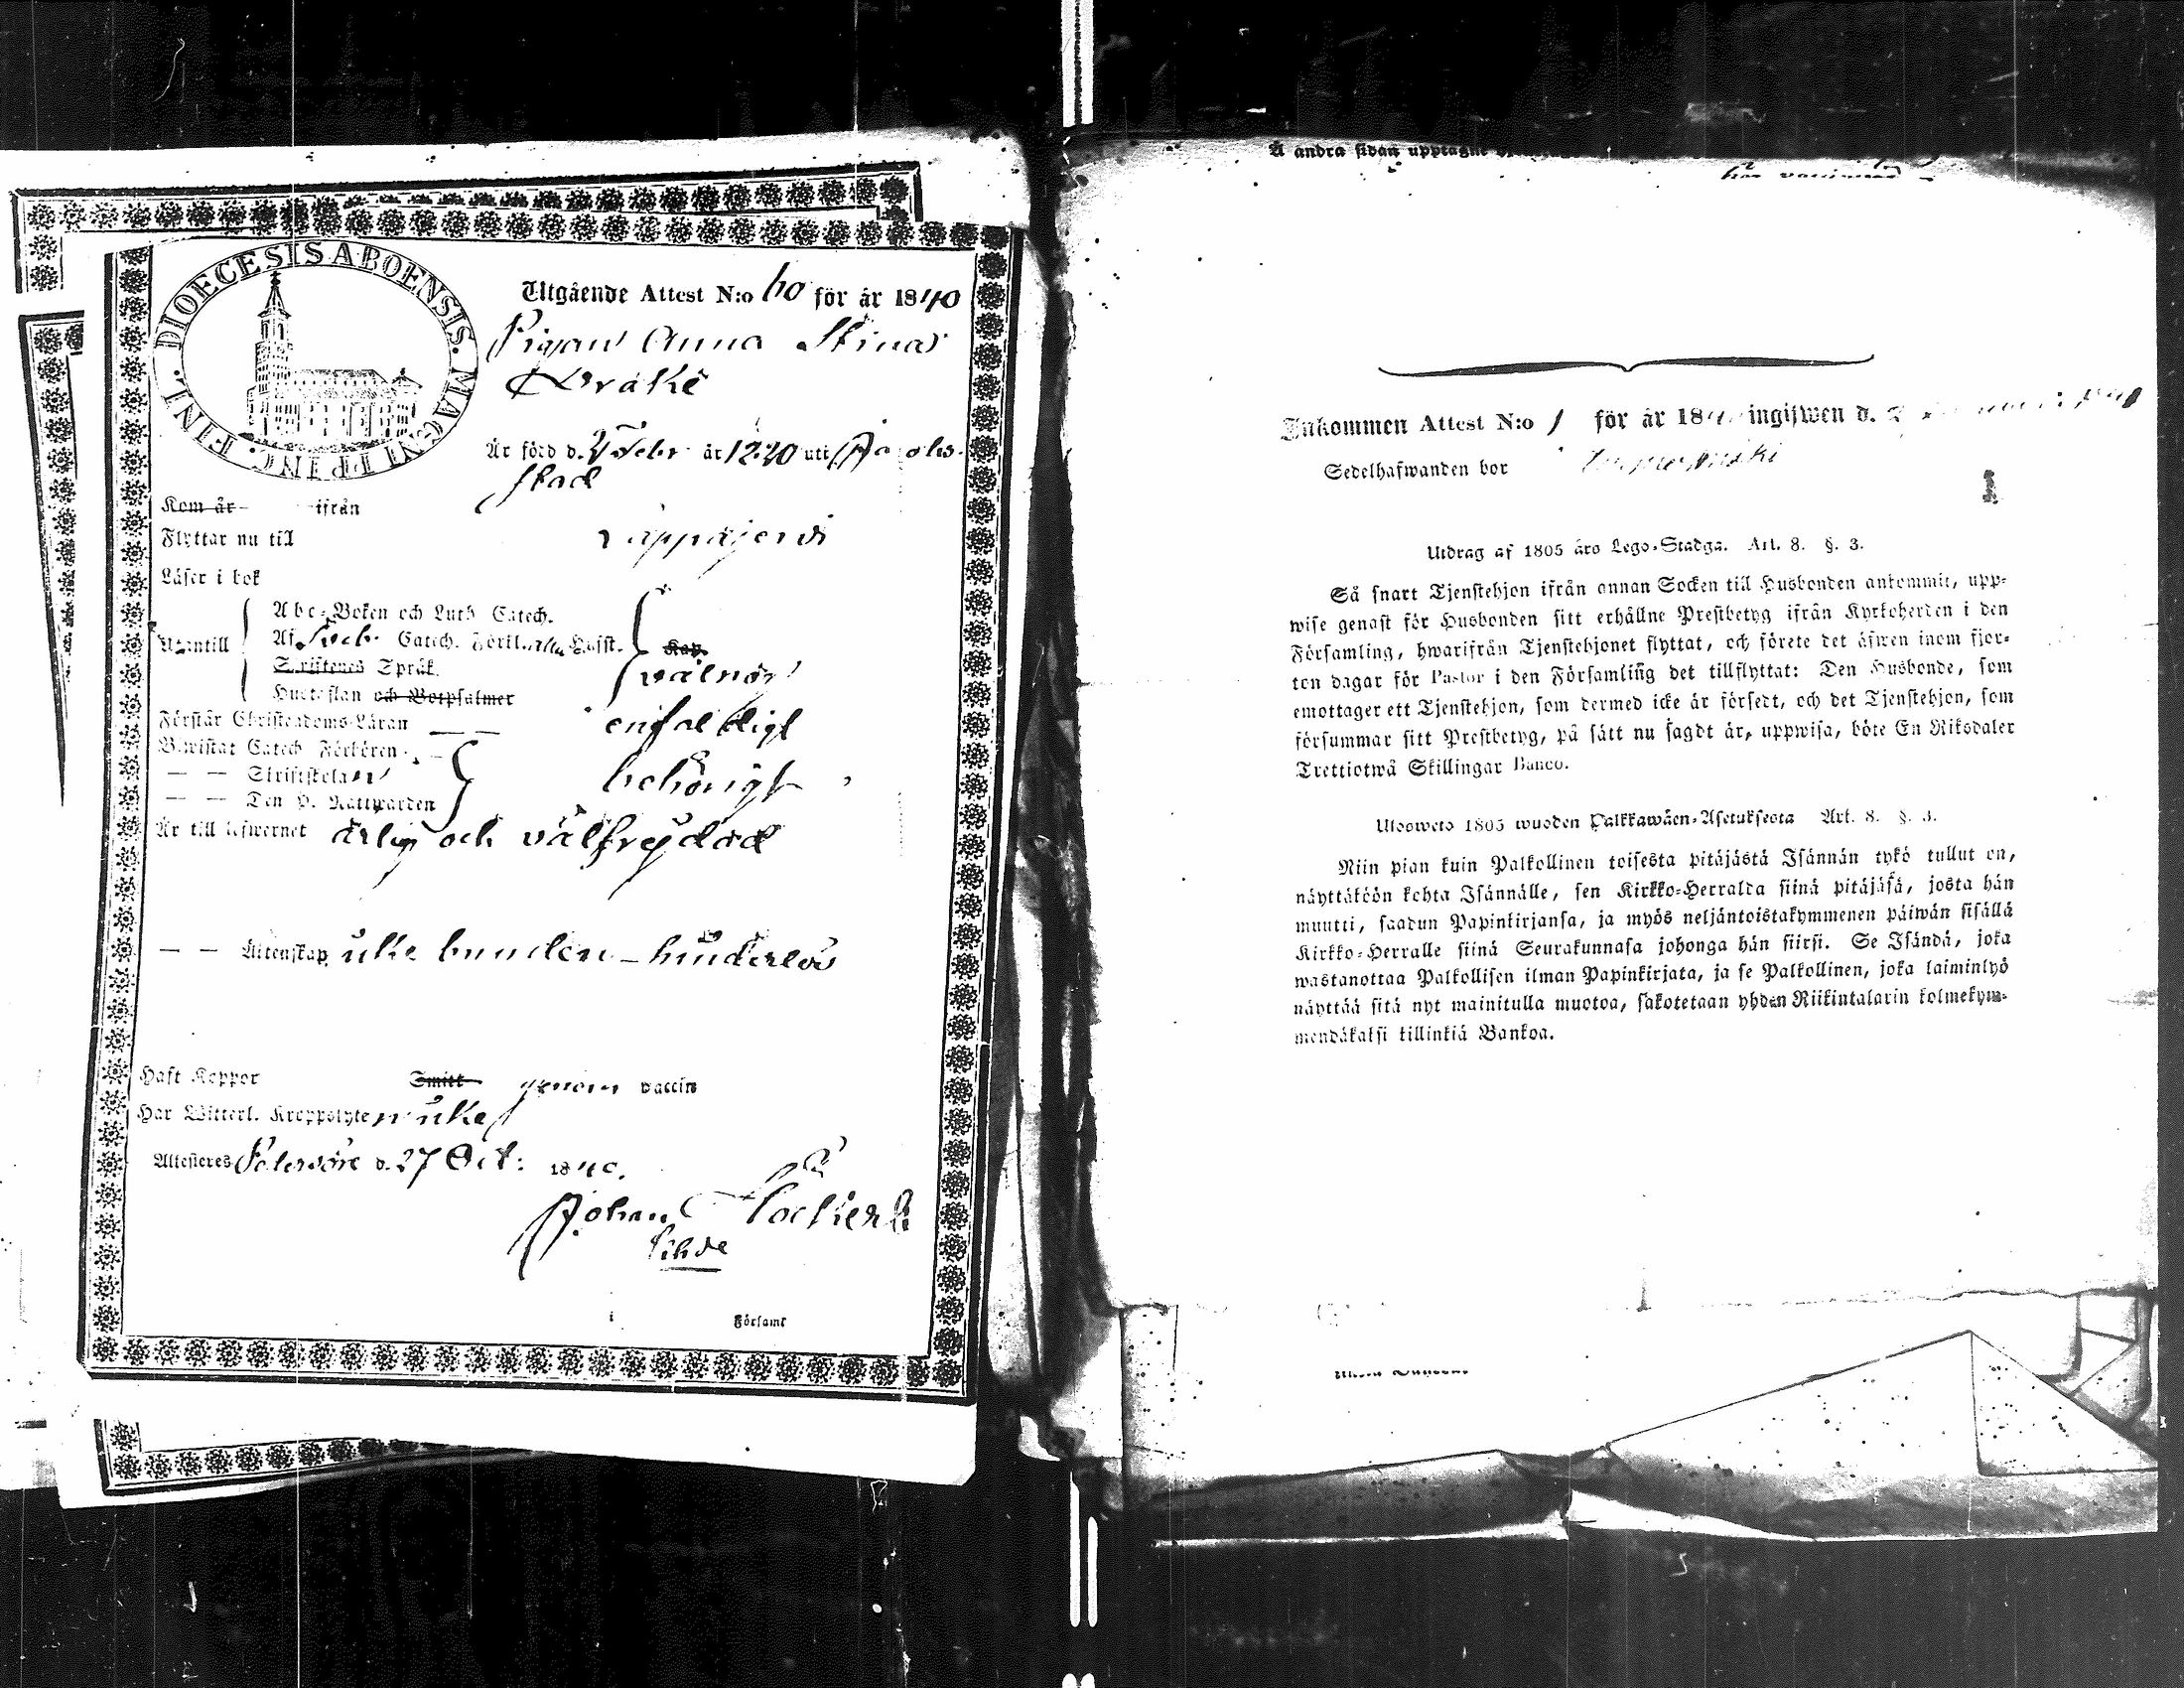 DIOECESIS ABOENSIS. MAGNI PRINC. FINL.
Utgående Attest N:o 60 för år 1840
Pigan Anna Stina
Dråke
Är född d. 2 Febr år 1820 uti Jacobs-
stad
Kom år ifrån
Flyttar nu till Lappajervi
Läser i bok
Utantill
Abc-Boken och Luth Catech.
Af Sveb. Catech. Hufst.
Kap.
Skriftenes Språk.
Hustaflan och Botpsalmer
välnöj
Förstår Christendoms-Läran enfaldigt
Bewistat Catech Förhören
— — Skriftskolan behörigt
— — Den H. Nattwarden
Är till lefwernet ärlig och välfrejdad
— — Äktenskap icke bunden - hinderlös
Haft Koppor Smitt genom vaccin
Har Witterl. Kroppslyten icke
Attesteras Pedersöre d. 27 Oct: 1840.
Johan
i Församl
Å andra sidan upptagne
Inkommen Attest N:o 1 för år 184 ingifwen d.
Sedelhafwanden bor
1
Utdrag af 1805 års Lego-Stadga. Art. 8. §. 3.
Så snart Tjenstehjon ifrån annan Socken till Husbonden ankommit, upp-
wise genast för Husbonden sitt erhållne Prestbetyg ifrån Kyrkoherden i den
Församling, hwarifrån Tjenstehjonet flyttat, och förete det äfwen inom fjor-
ton dagar för Pastor i den Församling det tillflyttat: Den Husbonde, som
emottager ett Tjenstehjon, som dermed icke är försedt, och det Tjenstehjon, som
försummar sitt Prestbetyg, på sätt nu sagdt är, uppwisa, böte En Riksdaler
Trettiotwå Skillingar Banco.
Ulosweto 1805 wuoden Palkkawäen-Asetuksesta Art. 8. §. 3.
Niin pian kuin Palkollinen toisesta pitäjästä Isännän tykö tullut on,
näyttäköön kohta Isännälle, sen Kirkko-Herralda siinä pitäjäsä, josta hän
muutti, saadun Papinkirjansa, ja myös neljäntoistakymmenen päiwän sisällä
Kirkko-Herralle siinä Seurakunnasa johonga hän siirsi. Se Isändä, joka
wastanottaa Palkollisen ilman Papinkirjata, ja se Palkollinen, joka laiminlyö
näyttää sitä nyt mainitulla muotoa, sakotetaan yhden Riikintalarin kolmekym-
mendäkaksi killinkiä Bankoa.